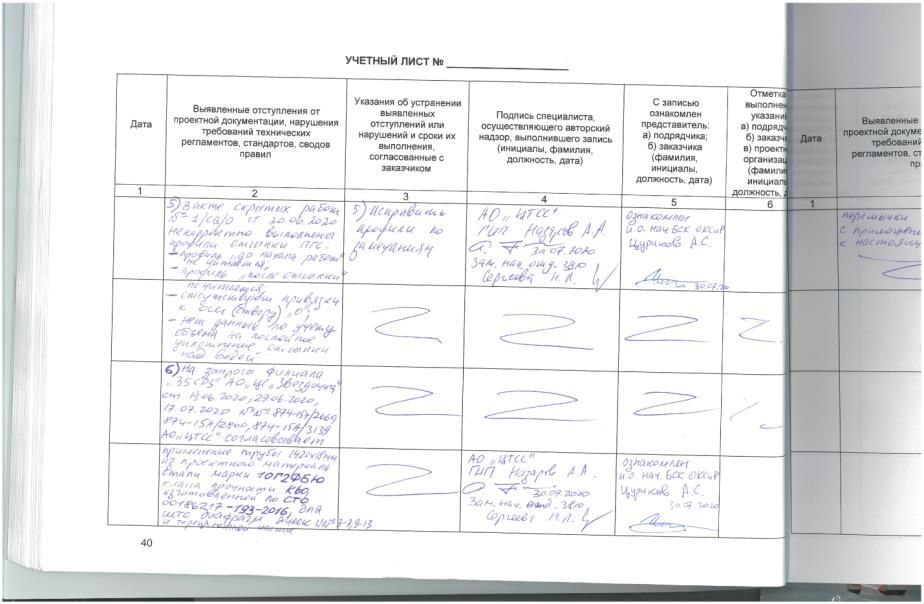 УЧЕТНЫЙ ЛИСТ № ____________________
Дата
Выявленные отступления от
проектной документации, нарушения
требований технических
регламентов, стандартов, сводов
правил
Указания об устранении
выявленных
отступлений или
нарушений и сроки их
выполнения,
согласованные с
заказчиком
Подпись специалиста,
осуществляющего авторский
надзор, выполнившего запись
(инициалы, фамилия,
должность, дата)
С записью
ознакомлен
представитель:
а) подрядчика;
б) заказчика
(фамилия,
инициалы,
должность, дата)
Отметка
выполнен
указани
а) подрядч
б) заказч
в) проектн
организац
(фамили
инициаль
должность, д
Дата
Выявленные
проектной докум
требований
регламентов, ст
пра
1
2
3
4
5
6
1
5) В акте скрытых работ
№ 1/СВ/0 от 20.06.2020
некорректно выполнены
профили отсыпки ПГС:
- профиль „до начала работ"
не читается;
- профиль „после отсыпки"
не читается;
- отсутствуют привязки
к оси (створу) „0";
- нет данных по учету
объема на послойное
уплотнение отсыпки
над водой
5) Исправить
профили по
замечаниям
АО „ЦТСС"
ГИП Назаров А.А.
30.07.2020
Зам. нач. отд. 380
Сергеева Н.Л.
ознакомлен
и.о. нач. БСК ОКСиР
Цуриков А.С.
30.07.20
6) На запросы филиала
„35 СРЗ" АО „ЦС „Звездочка"
от 19.06.2020, 29.06.2020,
17.07.2020 №№ 874-15А/2669
874-15А/2800, 874-15А/3139
АО „ЦТСС" согласовывает
применение трубы 1420х18мм
из проектного материала
стали марки 10Г2ФБЮ
класса прочности К60,
изготовленной по СТО
00186217-193-2016, для
шпс диафрагм ячеек
АО „ЦТСС"
ГИП Назаров А.А.
30.07.2020
Зам. нач. отд. 380
Сергеева Н.Л.
ознакомлен
и.о. нач. БСК ОКСиР
Цуриков А.С.
30.07.2020
перемычки
с
к настоящ
40